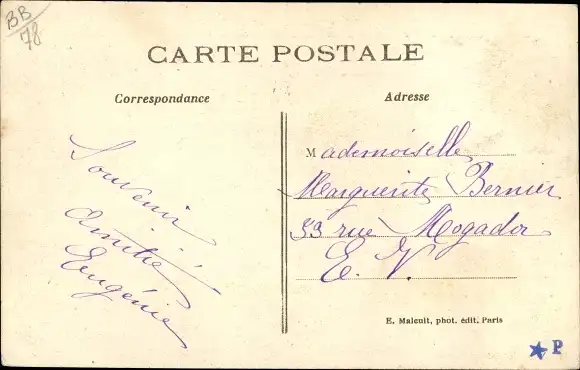 BB
78
CARTE POSTALE
Correspondance
Souvenir
Amitié
Eugénie
Adresse
Mademoiselle
Marguerite Bernier
53 rue Mogador
E. V.
E. Maleuit, phot. édit. Paris
★ P